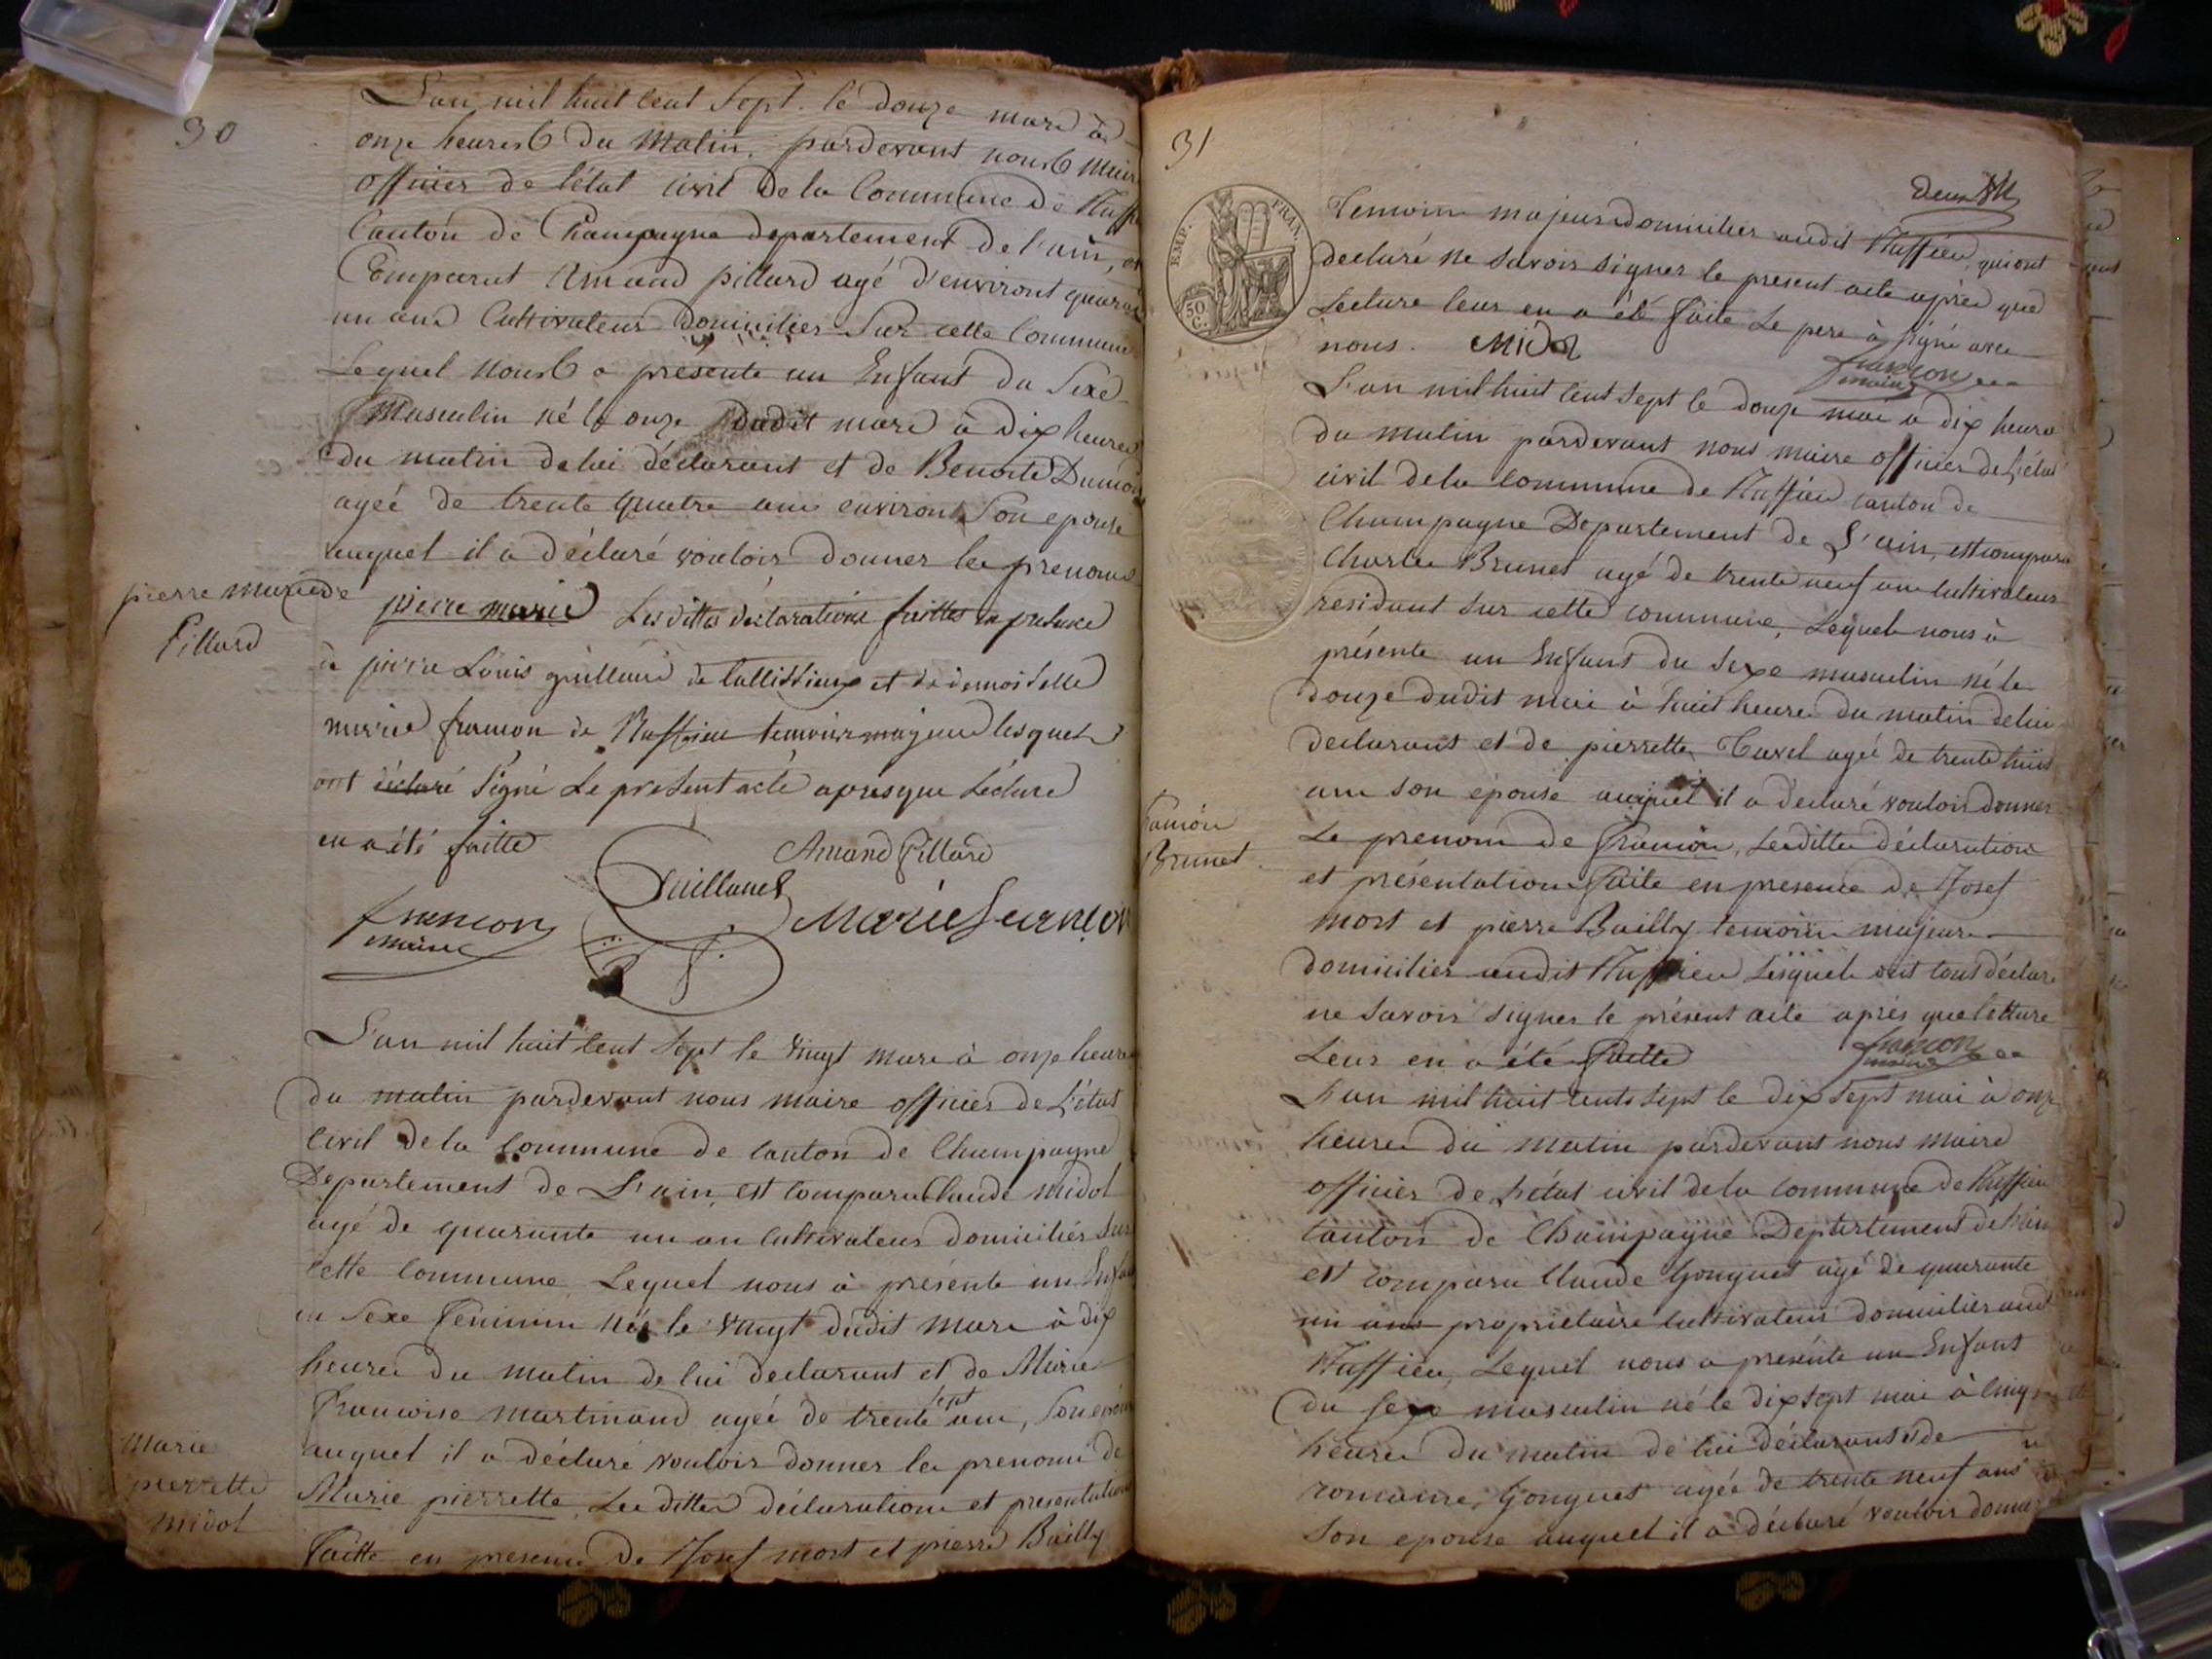 30
L'an mil huit cent sept. le douze mars à
onze heures du matin, pardevant nous maire
officier de l'état civil de la Commune de Ruffieu
Canton de Champagne departement de l'ain, est
Comparut Amand pillard agé d'environt quarante
un ans Cultivateur domicilier Sur cette Commune
Lequel nous a presenté un Enfant du Sexe
Masculin né le onze dudit mars à dix heures
du matin de lui déclarant et de Benoite Dumon
ageé de trente quatre ans environ Son epouse
auquel il a déclaré vouloir donner les prenoms de
pierre marie
Pillard
pierre marie Lesdittes déclarations faittes en presence
de pierre Louis guillaud de tallissieux et de demoiselle
marie francon de Ruffieu temoins majeurs lesquels
ont déclaré Signé Le present acte apres que Lecture
en a été faitte
Amand Pillard
Guillaud
francon
maire
Marie francon
L'an mil huit cent sept le vingt mars à onze heures
du matin pardevant nous maire officier de L'état
Civil de la Commune de canton de Champagne
Departement de L'ain, est comparu Claude midol
agé de quarante un an Cultivateur domicilier sur
cette Commune, Lequel nous à présenté un Enfant
du Sexe feminin née le vingt dudit mars à dix
heures du matin de lui declarant et de Marie
francoise martinand ageé de trente sept ans, Son epouse
auquel il a déclaré vouloir donner les prenoms de
Marie
pierrette
midol
Marie pierrette, Les dittes déclarations et presentations
faitte en presence de Josef mort et pierre Bailly
31
EMP. FRAN.
50 C.
temoins majeurs domicilies audit Ruffieu, qui ont
declaré ne savoir signer le present acte après que
Lecture leur en a été faite Le pere à signé avec
nous. Midol
francon
maire
L'an mil huit cent sept le douze mai a dix heures
du matin pardevant nous maire officier de L'état
civil de la commune de Ruffieu canton de
Champagne Departement de L'ain, est comparu
Charles Brunet agé de trente neuf ans cultivateur
residant sur cette commune, Lequel nous à
présenté un Enfant du sexe masculin né le
douze dudit mai à huit heures du matin de lui
declarant et de pierrette Cavel ageé de trente huit
ans son épouse auquel il a declaré vouloir donner
Brunet
Le prenom de francois, Lesditte déclaration
et présentation faite en presence de Josef
mort et pierre Bailly temoins majeurs
domicilier audit Ruffieu Lesquels ont tous déclaré
ne savoir signer le présent acte après que lecture
Leur en a été faitte
francon
maire
L'an mil huit cents sept le dix sept mai à onze
heures du matin pardevant nous maire
officier de L'état civil de la commune de Ruffieu
Canton de Champagne Departement de L'ain
est comparu Claude Gonguet agé de quarante
un ans proprietaire cultivateur domicilier audit
Ruffieu, Lequel nous a présenté un Enfant
du sexe masculin né le dix sept mai à cinq
heures du matin de lui déclarant et de
romaine, Gonguet ageé de trente neuf ans
Son epouse auquel il a déclaré vouloir donner